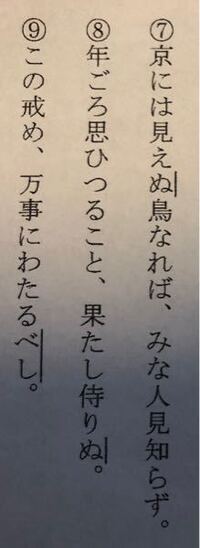 ⑦京には見えぬ鳥なれば、みな人見知らず。
⑧年ごろ思ひつること、果たし侍りぬ。
⑨この戒め、万事にわたるべし。